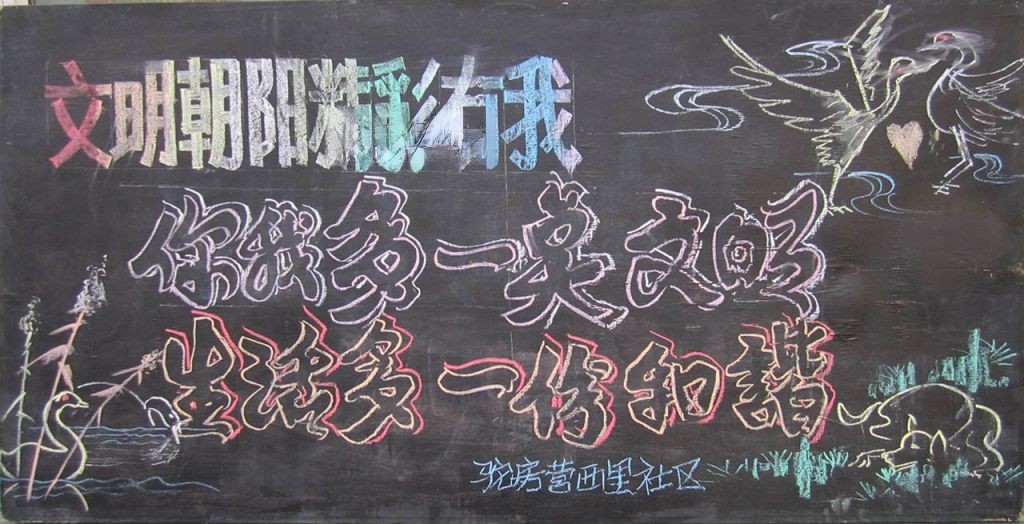 文明朝阳精彩有我
你我多一奌文明
生活多一份和諧
驼房营西里社区